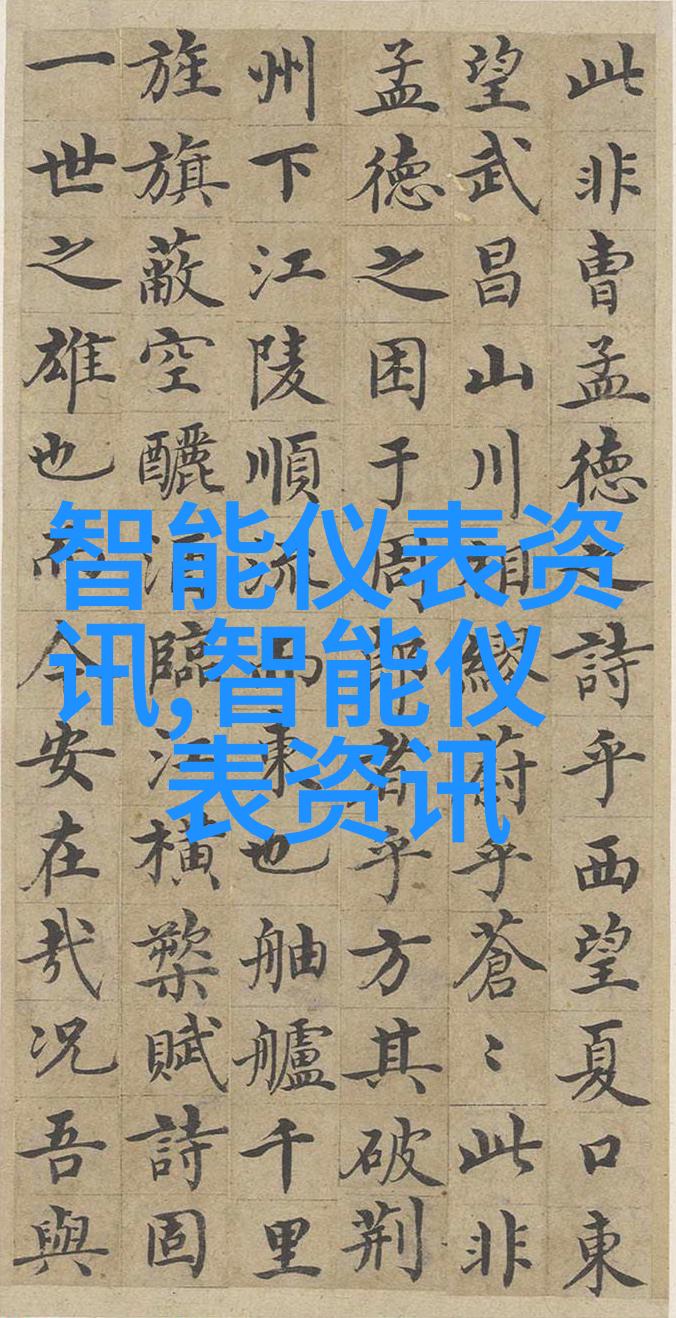 此非曹孟德之詩乎西望夏口東
望武昌山川相繆蔚乎蒼〻此非
孟德之困于周郎者乎方其破荆
州下江陵順流而東也舳艫千里
旌旗蔽空釃酒臨江横槊賦詩固
一世之雄也而今安在哉况吾與
智能仪表资
讯,智能仪
表资讯